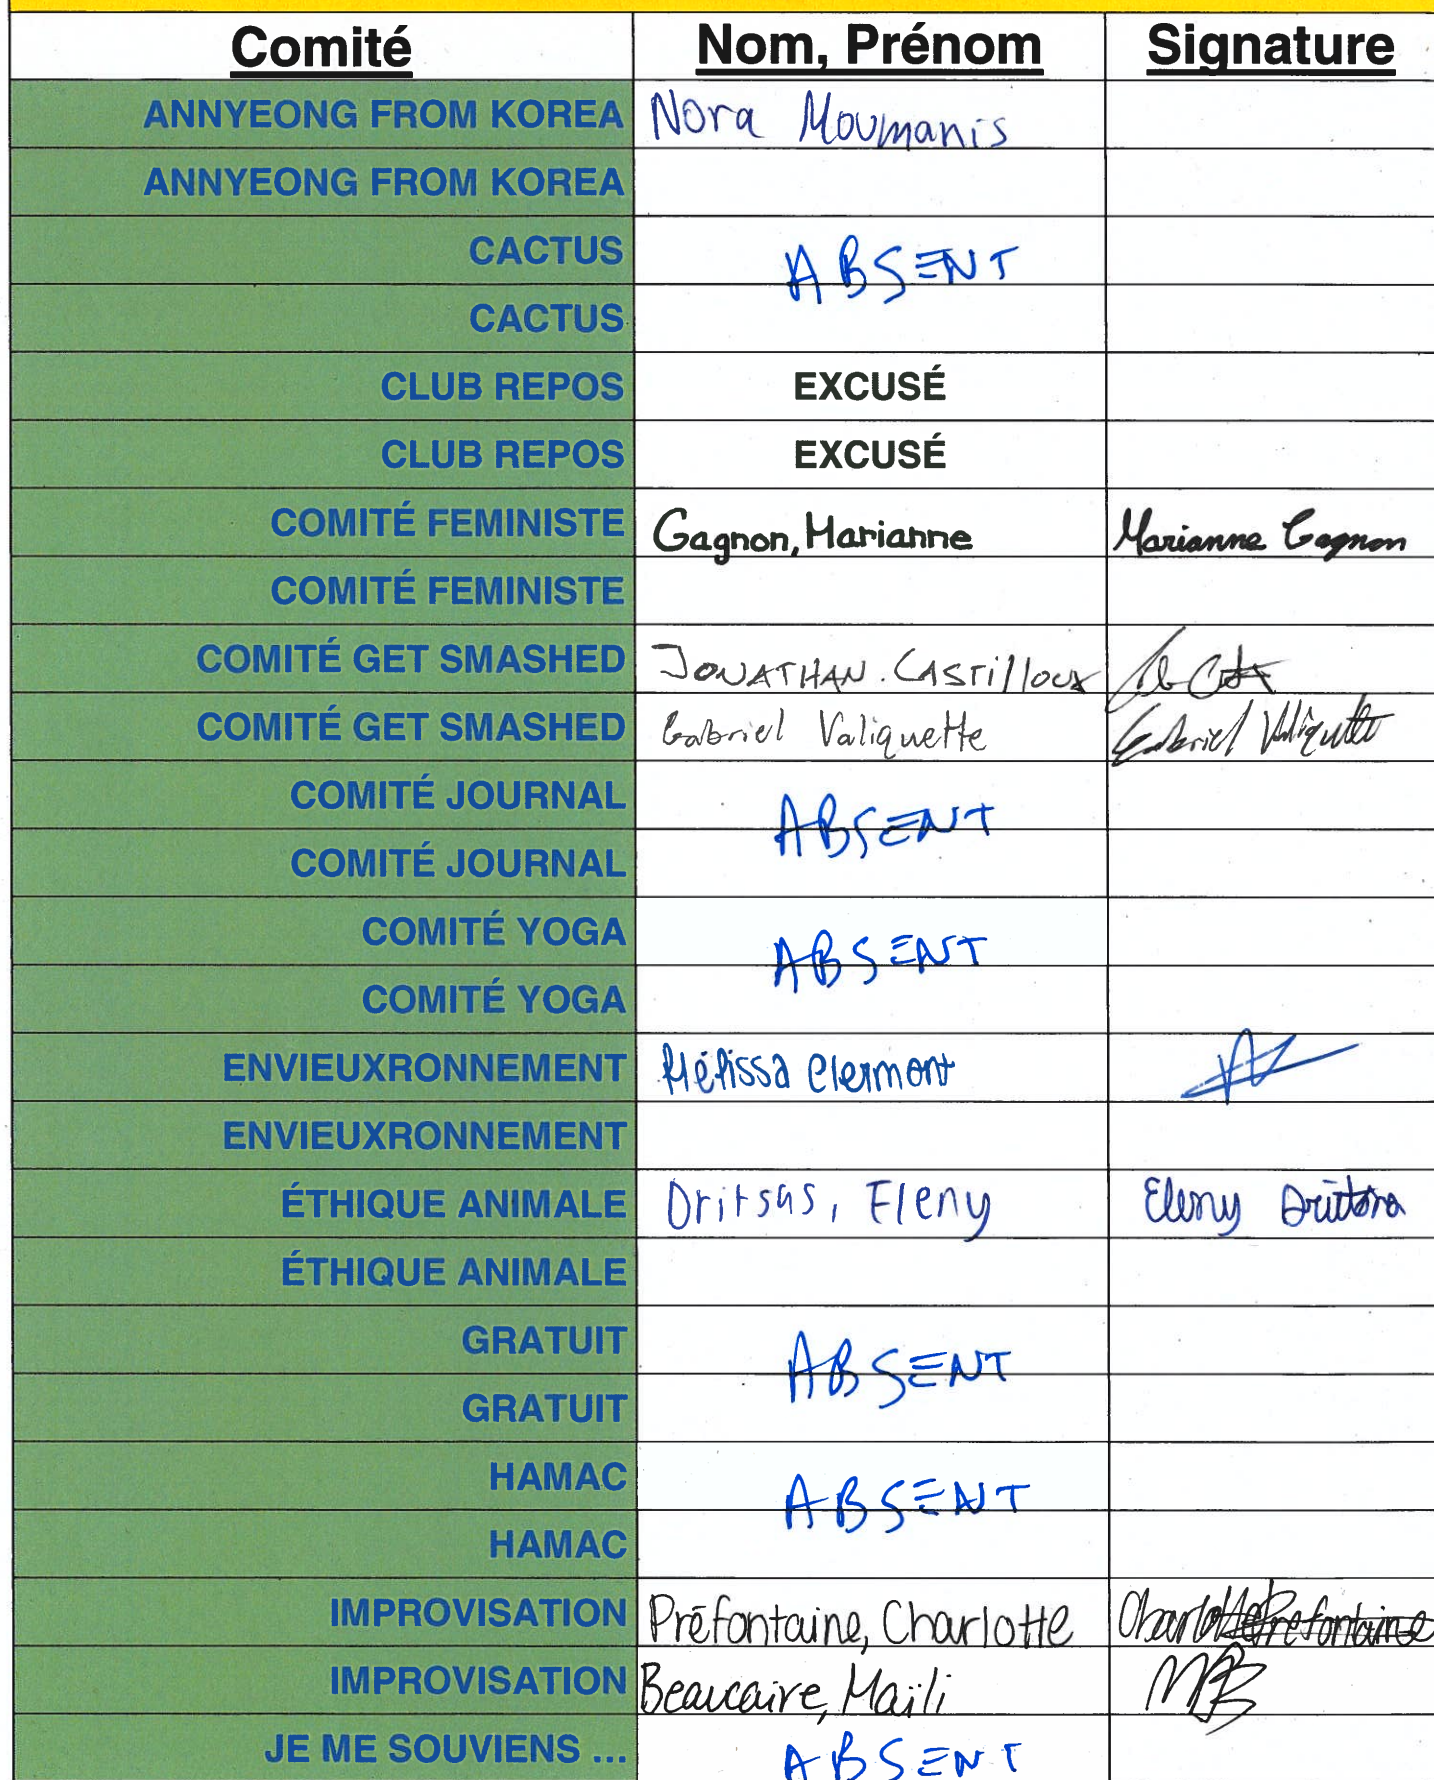 Comité Nom, Prénom Signature
ANNYEONG FROM KOREA Nora Moumanis
ANNYEONG FROM KOREA
CACTUS ABSENT
CACTUS
CLUB REPOS EXCUSÉ
CLUB REPOS EXCUSÉ
COMITÉ FEMINISTE Gagnon, Marianne Marianne Gagnon
COMITÉ FEMINISTE
COMITÉ GET SMASHED JONATHAN. CASTilloux
COMITÉ GET SMASHED Gabriel Valiquette Gabriel Valiquette
COMITÉ JOURNAL ABSENT
COMITÉ JOURNAL
COMITÉ YOGA ABSENT
COMITÉ YOGA
ENVIEUXRONNEMENT Mélissa Clermont
ENVIEUXRONNEMENT
ÉTHIQUE ANIMALE Dritsas, Eleny Eleny Dritsas
ÉTHIQUE ANIMALE
GRATUIT ABSENT
GRATUIT
HAMAC ABSENT
HAMAC
IMPROVISATION Préfontaine, Charlotte Charlotte Prefontaine
IMPROVISATION Beaucaire, Maïli MB
JE ME SOUVIENS ... ABSENT